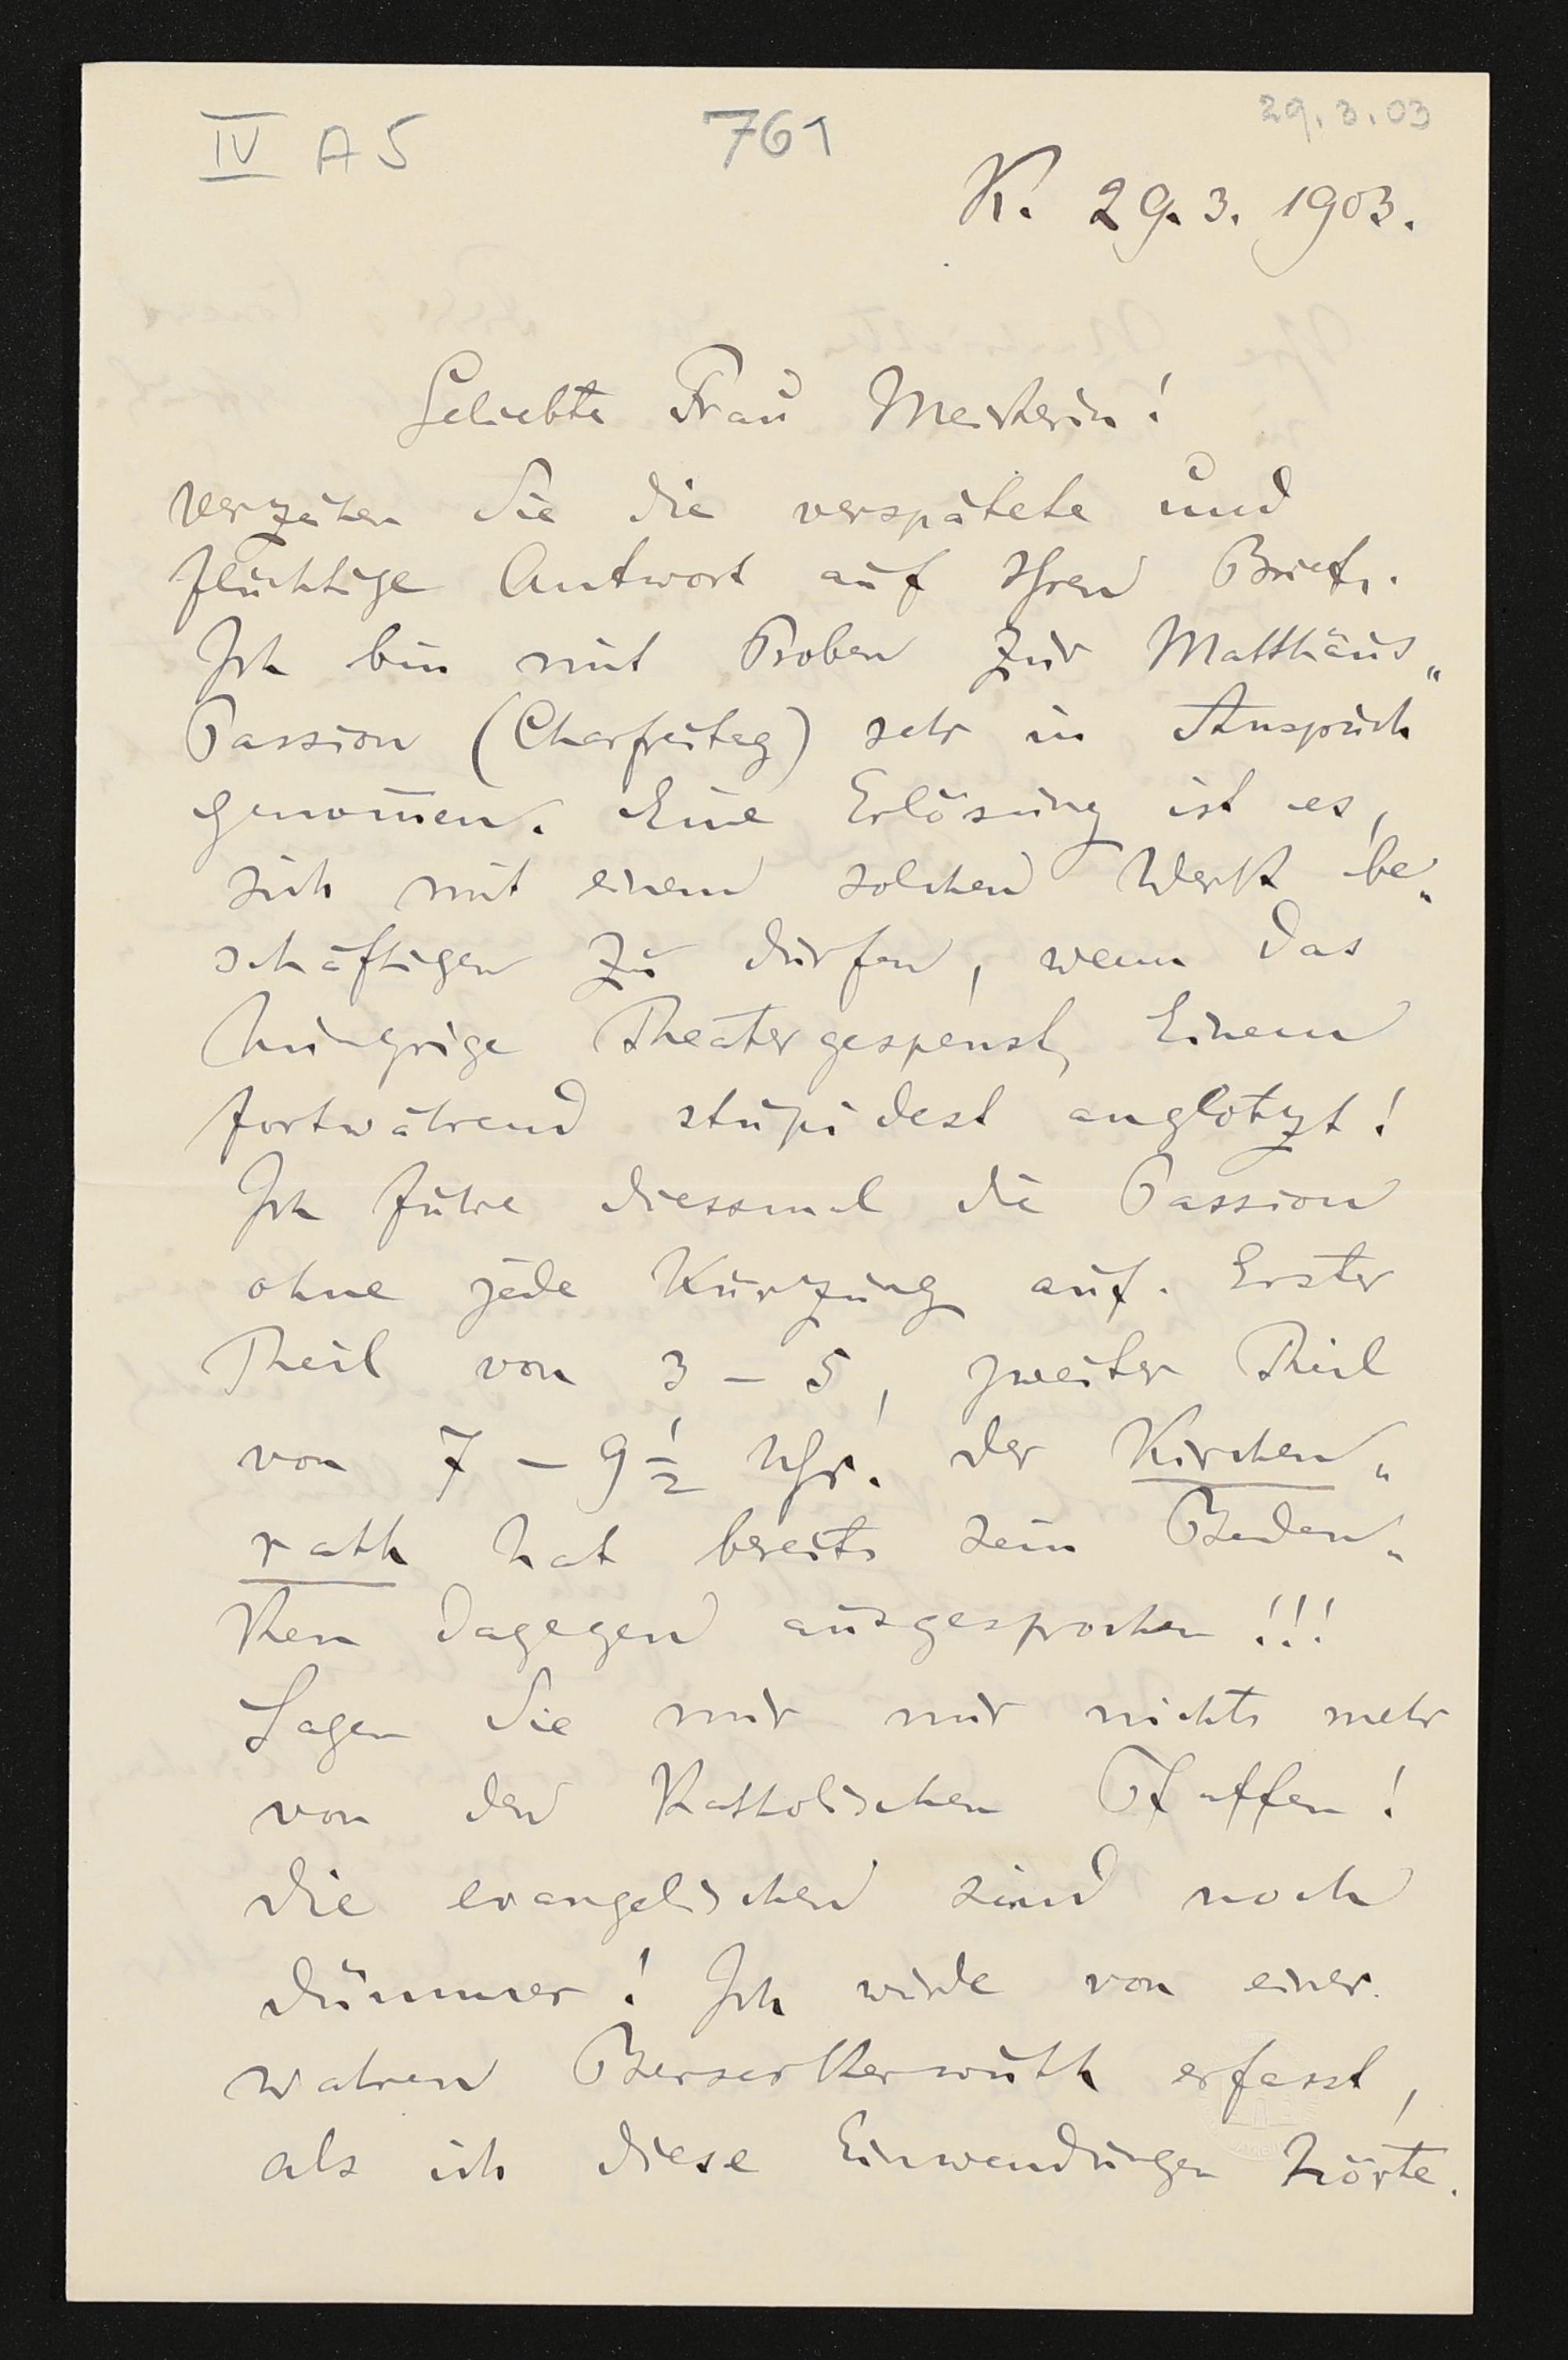 IV A 5 761 29.3.03
K. 29.3.1903.
Geliebte Frau Meisterin!
verzeihen Sie die verspätete und
flüchtige Antwort auf Ihren Brief.
Ich bin mit Proben zur Matthäus„
Passion (Charfreitag) sehr in Anspruch
genom̅en. Eine Erlösung ist es,
sich mit einem solchen Werk be„
schäftigen zu dürfen, wenn das
hungrige Theatergespenst, Einem
fortwährend stupidest anglotzt!
Ich führe diessmal die Passion
ohne jede Kürzung auf. Erster
Theil von 3 – 5, zweiter Theil
von 7 – 9 1/2 Uhr. Der Kirchen„
rath hat bereits sein Beden„
ken dagegen ausgesprochen!!!
Sagen Sie mir nur nichts mehr
von den Katholischen Pfaffen!
die evangelischen sind noch
dümmer! Ich wurde von einer
wahren Berserkerwuth erfasst,
als ich diese Einwendungen hörte.